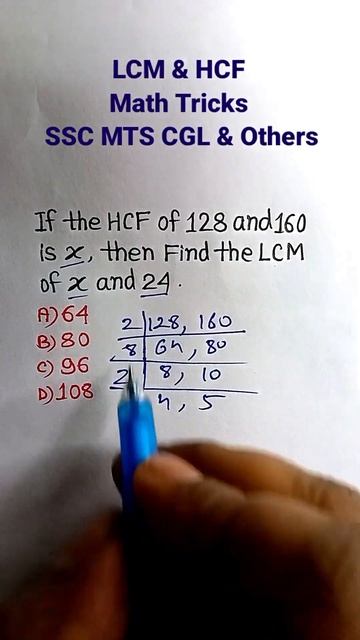 LCM & HCF
Math Tricks
SSC MTS CGL & Others
If the HCF of 128 and 160
is x, then Find the LCM
of x and 24.
A) 64
B) 80
C) 96
D) 108
2 | 128, 160
8 | 64, 80
2 | 8, 10
4, 5